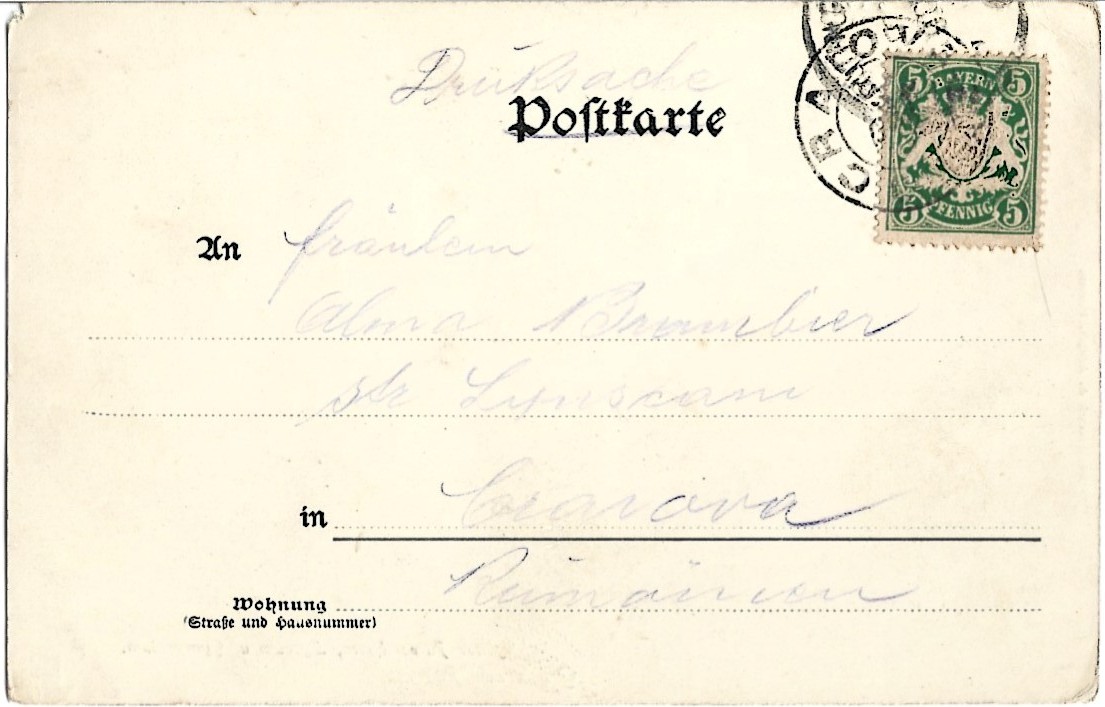 Drüksache
Postkarte
CRAIOVA
5 BAYERN 5
5 PFENNIG 5
An Fräulein
Alma
str Lipscani
in Craiova
Rumänien
Wohnung
(Straße und Hausnummer)